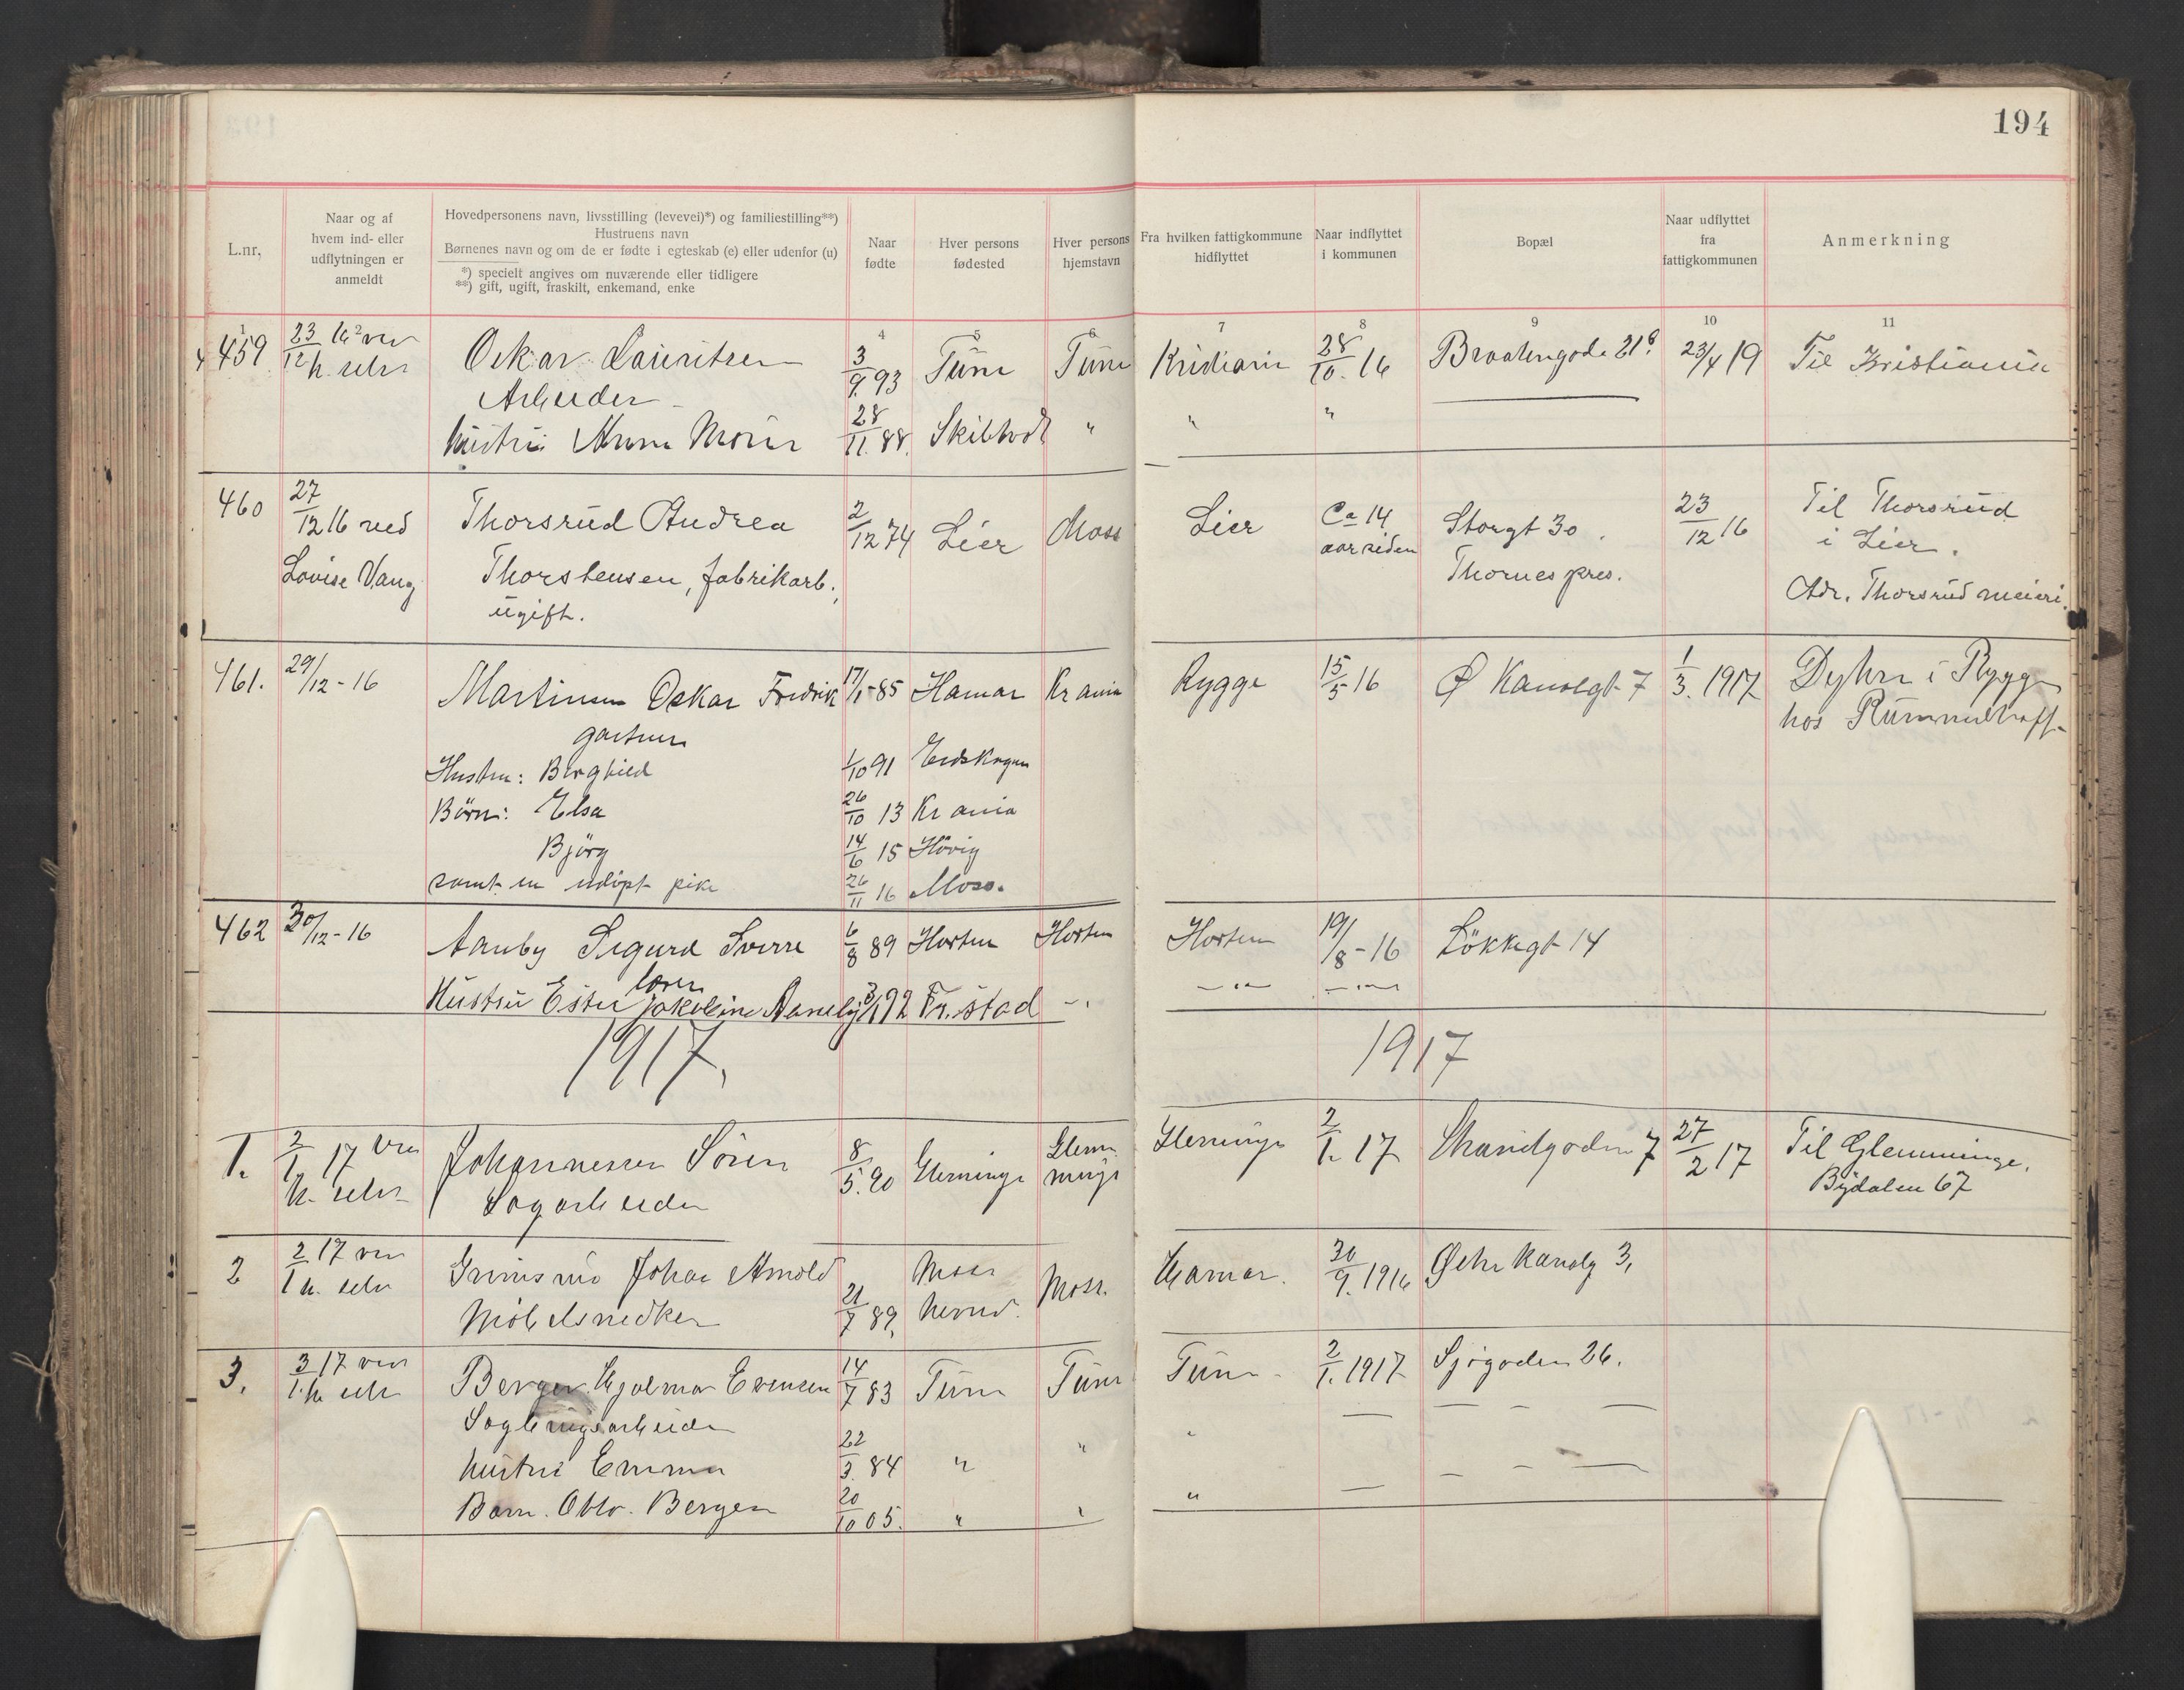 194
L.nr.
Naar og af hvem ind- eller udflytningen er anmeldt
Hovedpersonens navn, livsstilling (levevei)*) og familiestilling**)
Hustruens navn
Børnenes navn og om de er fødte i egteskab (e) eller udenfor (u)
*) specielt angives om nuværende eller tidligere
**) gift, ugift, fraskilt, enkemand, enke
Naar fødte
Hver persons fødested
Hver persons hjemstavn
Fra hvilken fattigkommune hidflyttet
Naar indflyttet i kommunen
Bopæl
Naar udflyttet fra fattigkommunen
Anmerkning
4 5 6 7 8 9 10 11
459 23/12 16 Oskar Lauritsen 3/9 93 Tune Tune Kristiania 28/10 16 23/4 19 Til Kristiania
Arbeider
Hustru Anna 28/11 88. " " "
460 27/12 16 ved Thorsrud Andrea 2/12 74 Lier Moss Lier Ca 14 Storgt 30. 23/12 16 Til Thorsrud
Lovise Vang Thorstensen, fabrikarb., aar siden Thornes i Lier.
ugift. Adr. Thorsrud meieri.
461. 29/12-16 Martinsen Oskar Fredrik 17/1-85 Hamar Kr ania Rygge 15/5 16 Ø Kanalgt 7 1/3. 1917 i Rygge
gartner hos
Hustru: Borghild 1/10 91 Eidskogen
Børn: Elsa 26/10 13 Kr ania
Bjørg 14/6 15 Høvig
samt en udøpt pike 26/11 16 Moss.
462 30/12-16 Aanby Sigurd Sverre 6/8 89 Horten Horten Horten 19/8-16 Løkkegt 14
Hustru Ester Jakobine Aanby 92 Fr.stad
1917. 1917
1. 2/1 17 Johannesen Søren 8/5. 90 Glemminge Glemminge Glemminge 2/1. 17 Strandgaden 7 27/2 17 Til Glemminge.
h. selv Sagarbeider Bydalen 67
2 2/1 17 Johan Arnold Moss Moss. Hamar. 30/9. 1916 Østre Kanalg 3,
h. selv Møbelsnedker 21/7 89,
3. 3/1 17 Berger Hjalmar Evensen 14/7 83 Tune Tune Tune 2/1. 1917 Sjøgaden 26.
h. selv
Hustru Emma 22/3. 84 " " "
Barn. Berger 20/10 05. " " "